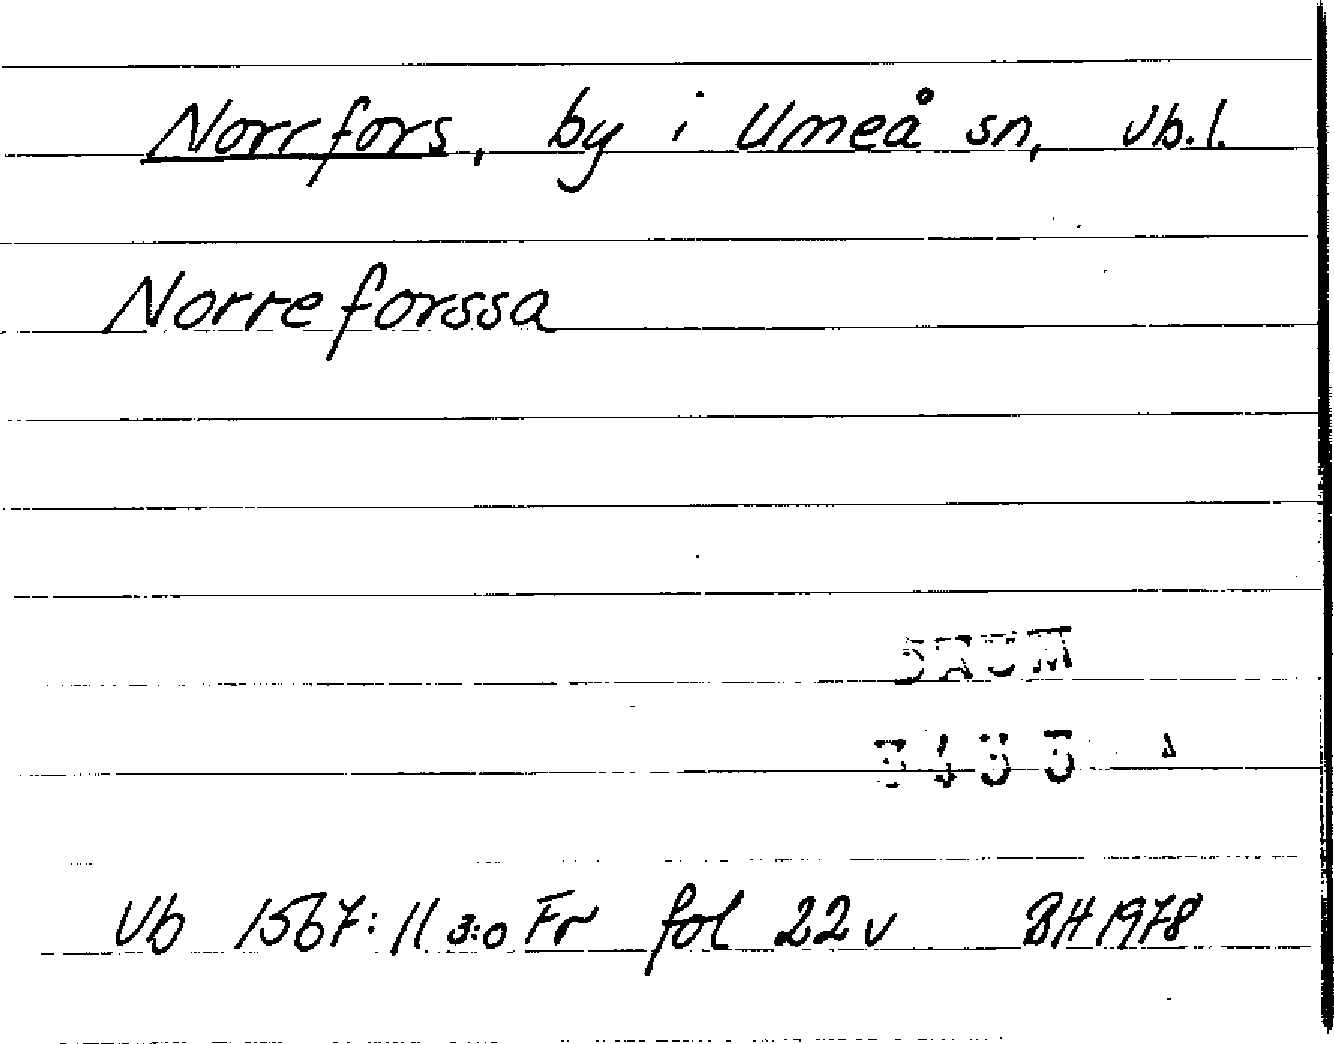 Norrfors, by i Umeå sn, Vb.l.
Norreforssa
Vb 1567:11 3:0 Fr fol 22 v BH 1978